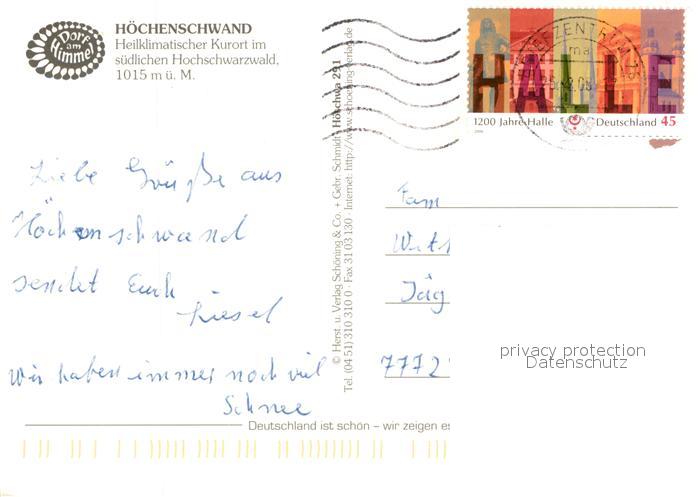 Dorf
am
Himmel
HÖCHENSCHWAND
Heilklimatischer Kurort im
südlichen Hochschwarzwald,
1015 m ü. M.
Liebe Grüße aus
Höchenschwand
sendet Euch
Liesel
wir haben immer noch viel
Schnee
© Herst. u. Verlag Schöning & Co. + Gebr. Schmidt · Höschwa 291
Tel. (04 51) 310 310 0 · Fax 31 03 130 · Internet: http://www.schoening-verlag.de
HALLE
1200 Jahre Halle Deutschland 45
Fam
Jäg
7772
privacy protection
Datenschutz
Deutschland ist schön – wir zeigen es